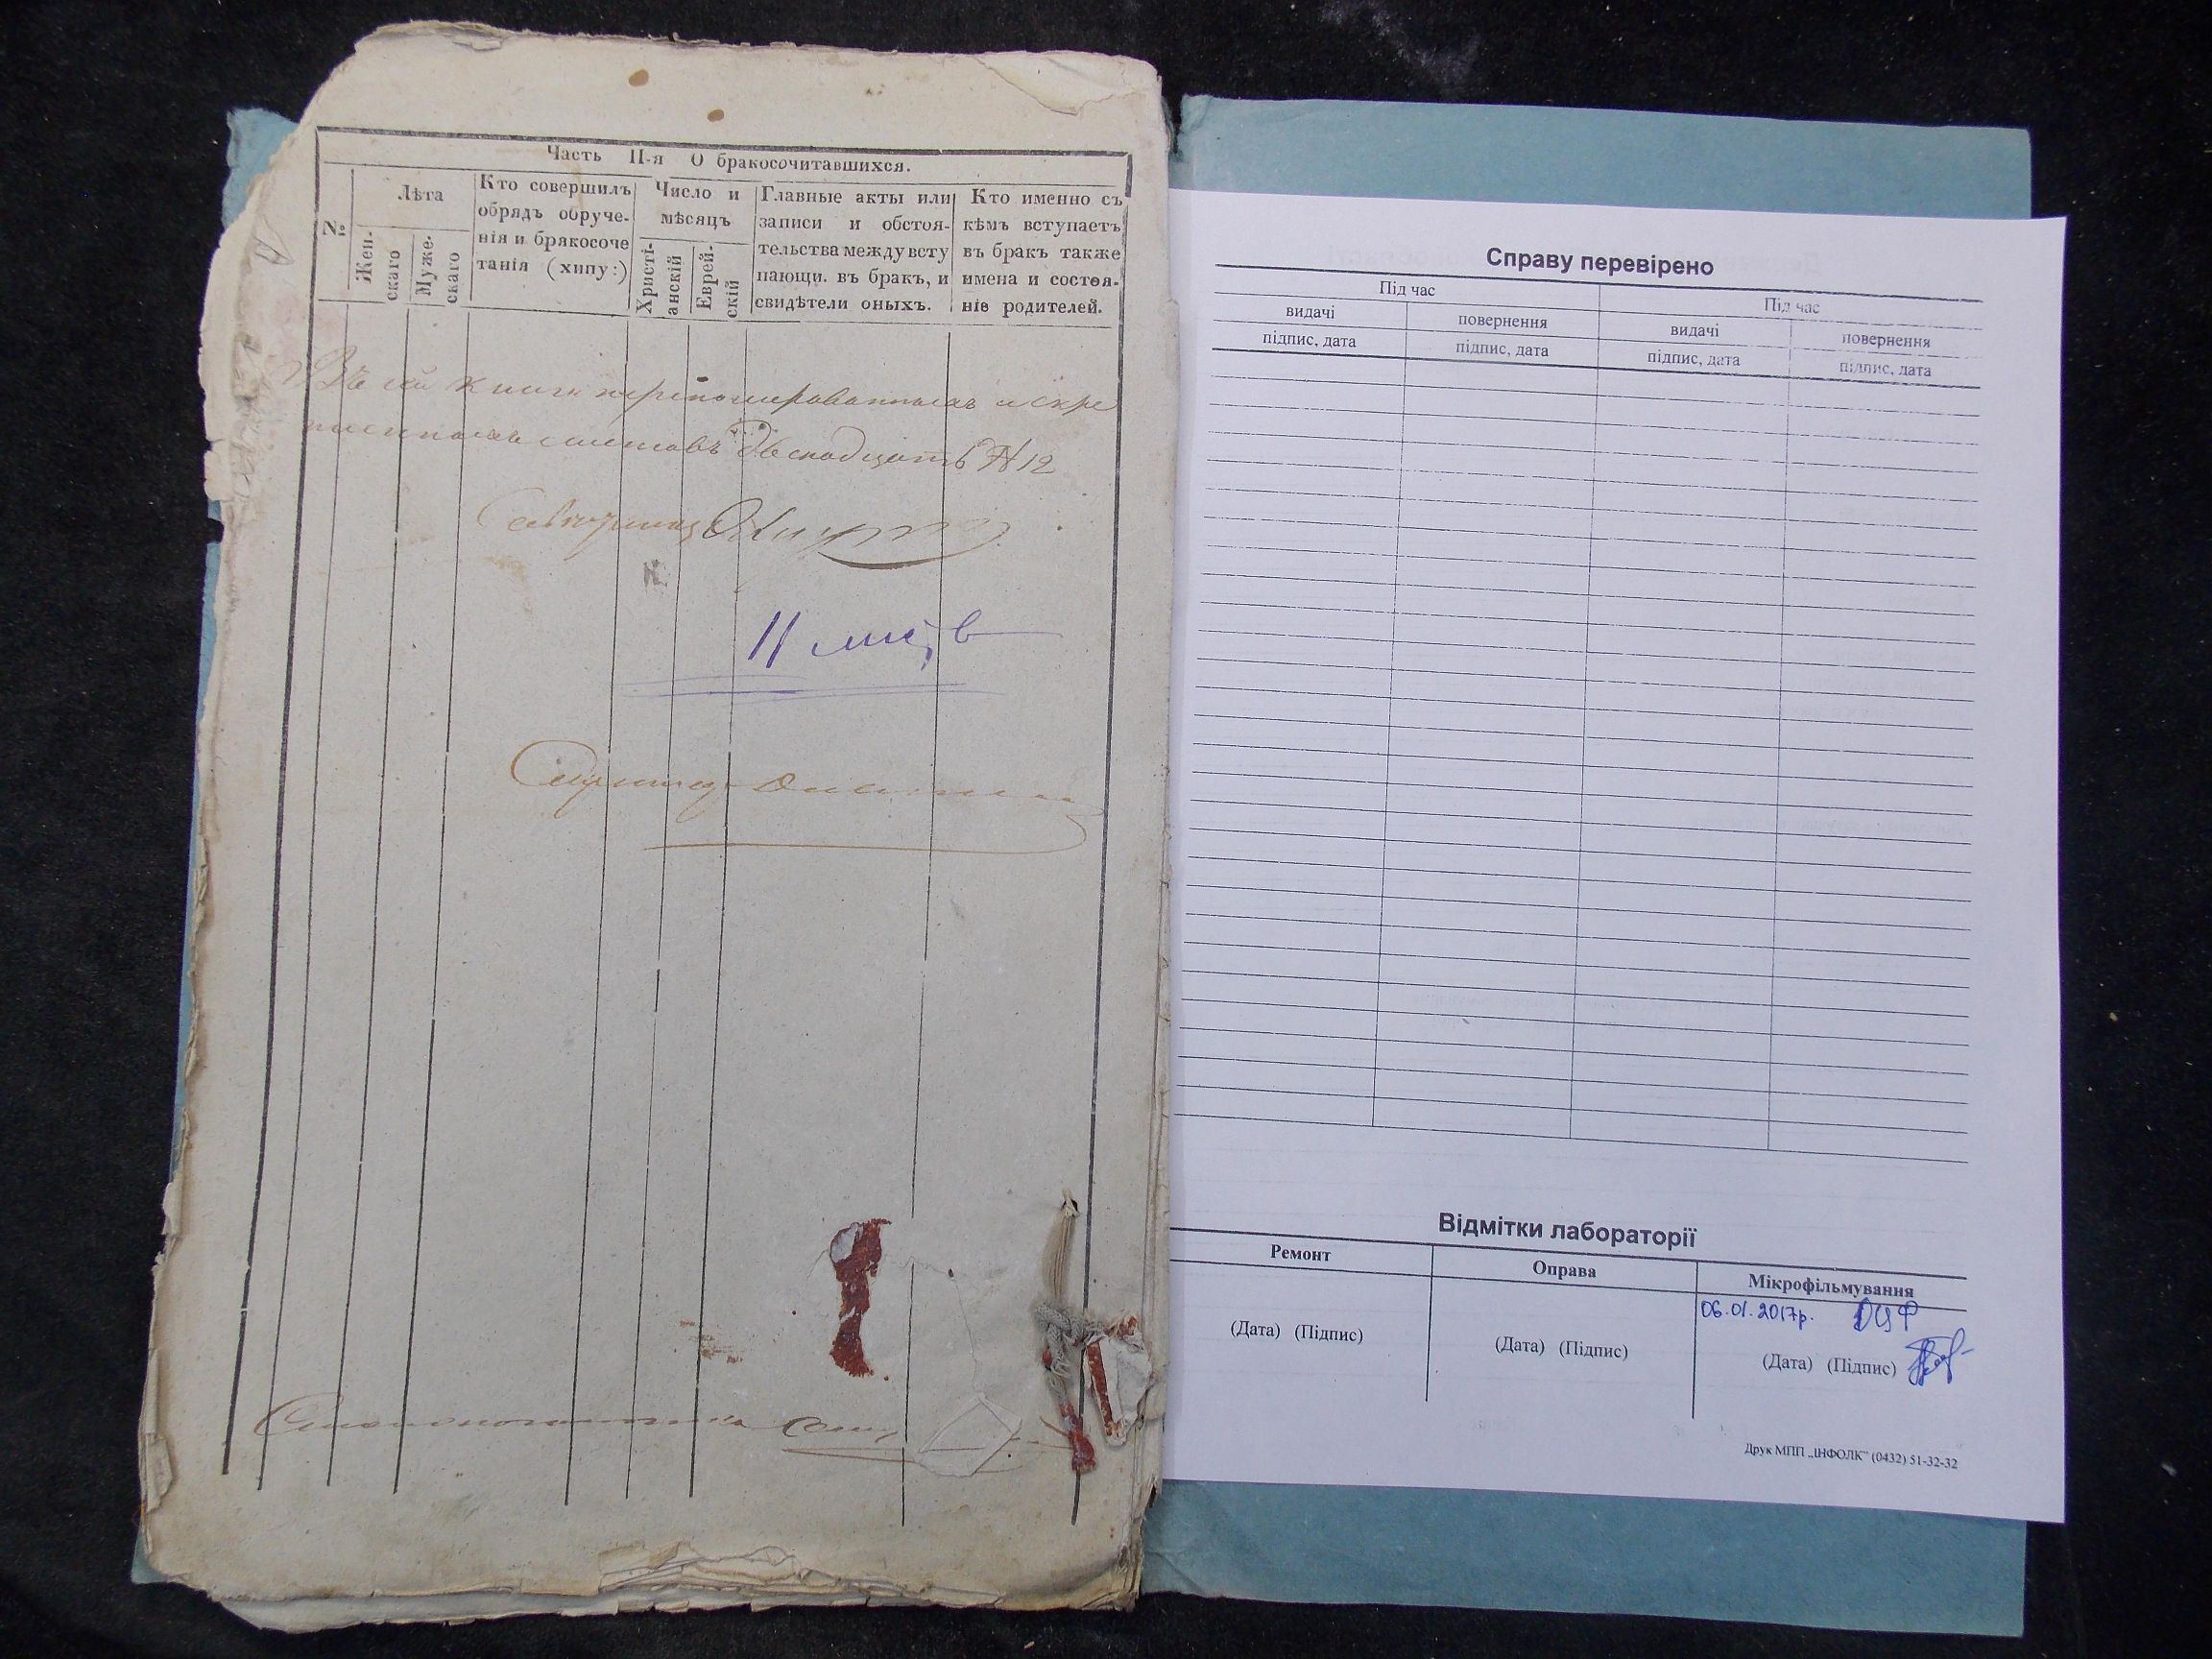 Часть II-я О бракосочитавшихся.
№
Лѣта
Жен-
скаго
Муже-
скаго
Кто совершилъ
обрядъ обруче-
нія и бракосоче
танія (хипу:)
Число и
мѣсяцъ
Христі-
анскій
Еврей-
скій
Главные акты или
записи и обстоя-
тельства между всту
пающи. въ бракъ, и
свидѣтели оныхъ.
Кто именно съ
кѣмъ вступаетъ
въ бракъ также
имена и состоя-
ніе родителей.
Въ сей книги пронумерованныхъ и скре
пленныхъ листовъ двенадцать № 12
11 лис
Справу перевірено
Під час
Під час
видачі
повернення
видачі
повернення
підпис, дата
підпис, дата
підпис, дата
підпис, дата
Відмітки лабораторії
Ремонт
Оправа
Мікрофільмування
06.01.2017р. ДЦФ
(Дата) (Підпис)
(Дата) (Підпис)
(Дата) (Підпис)
Друк МПП „ІНФОЛК" (0432) 51-32-32